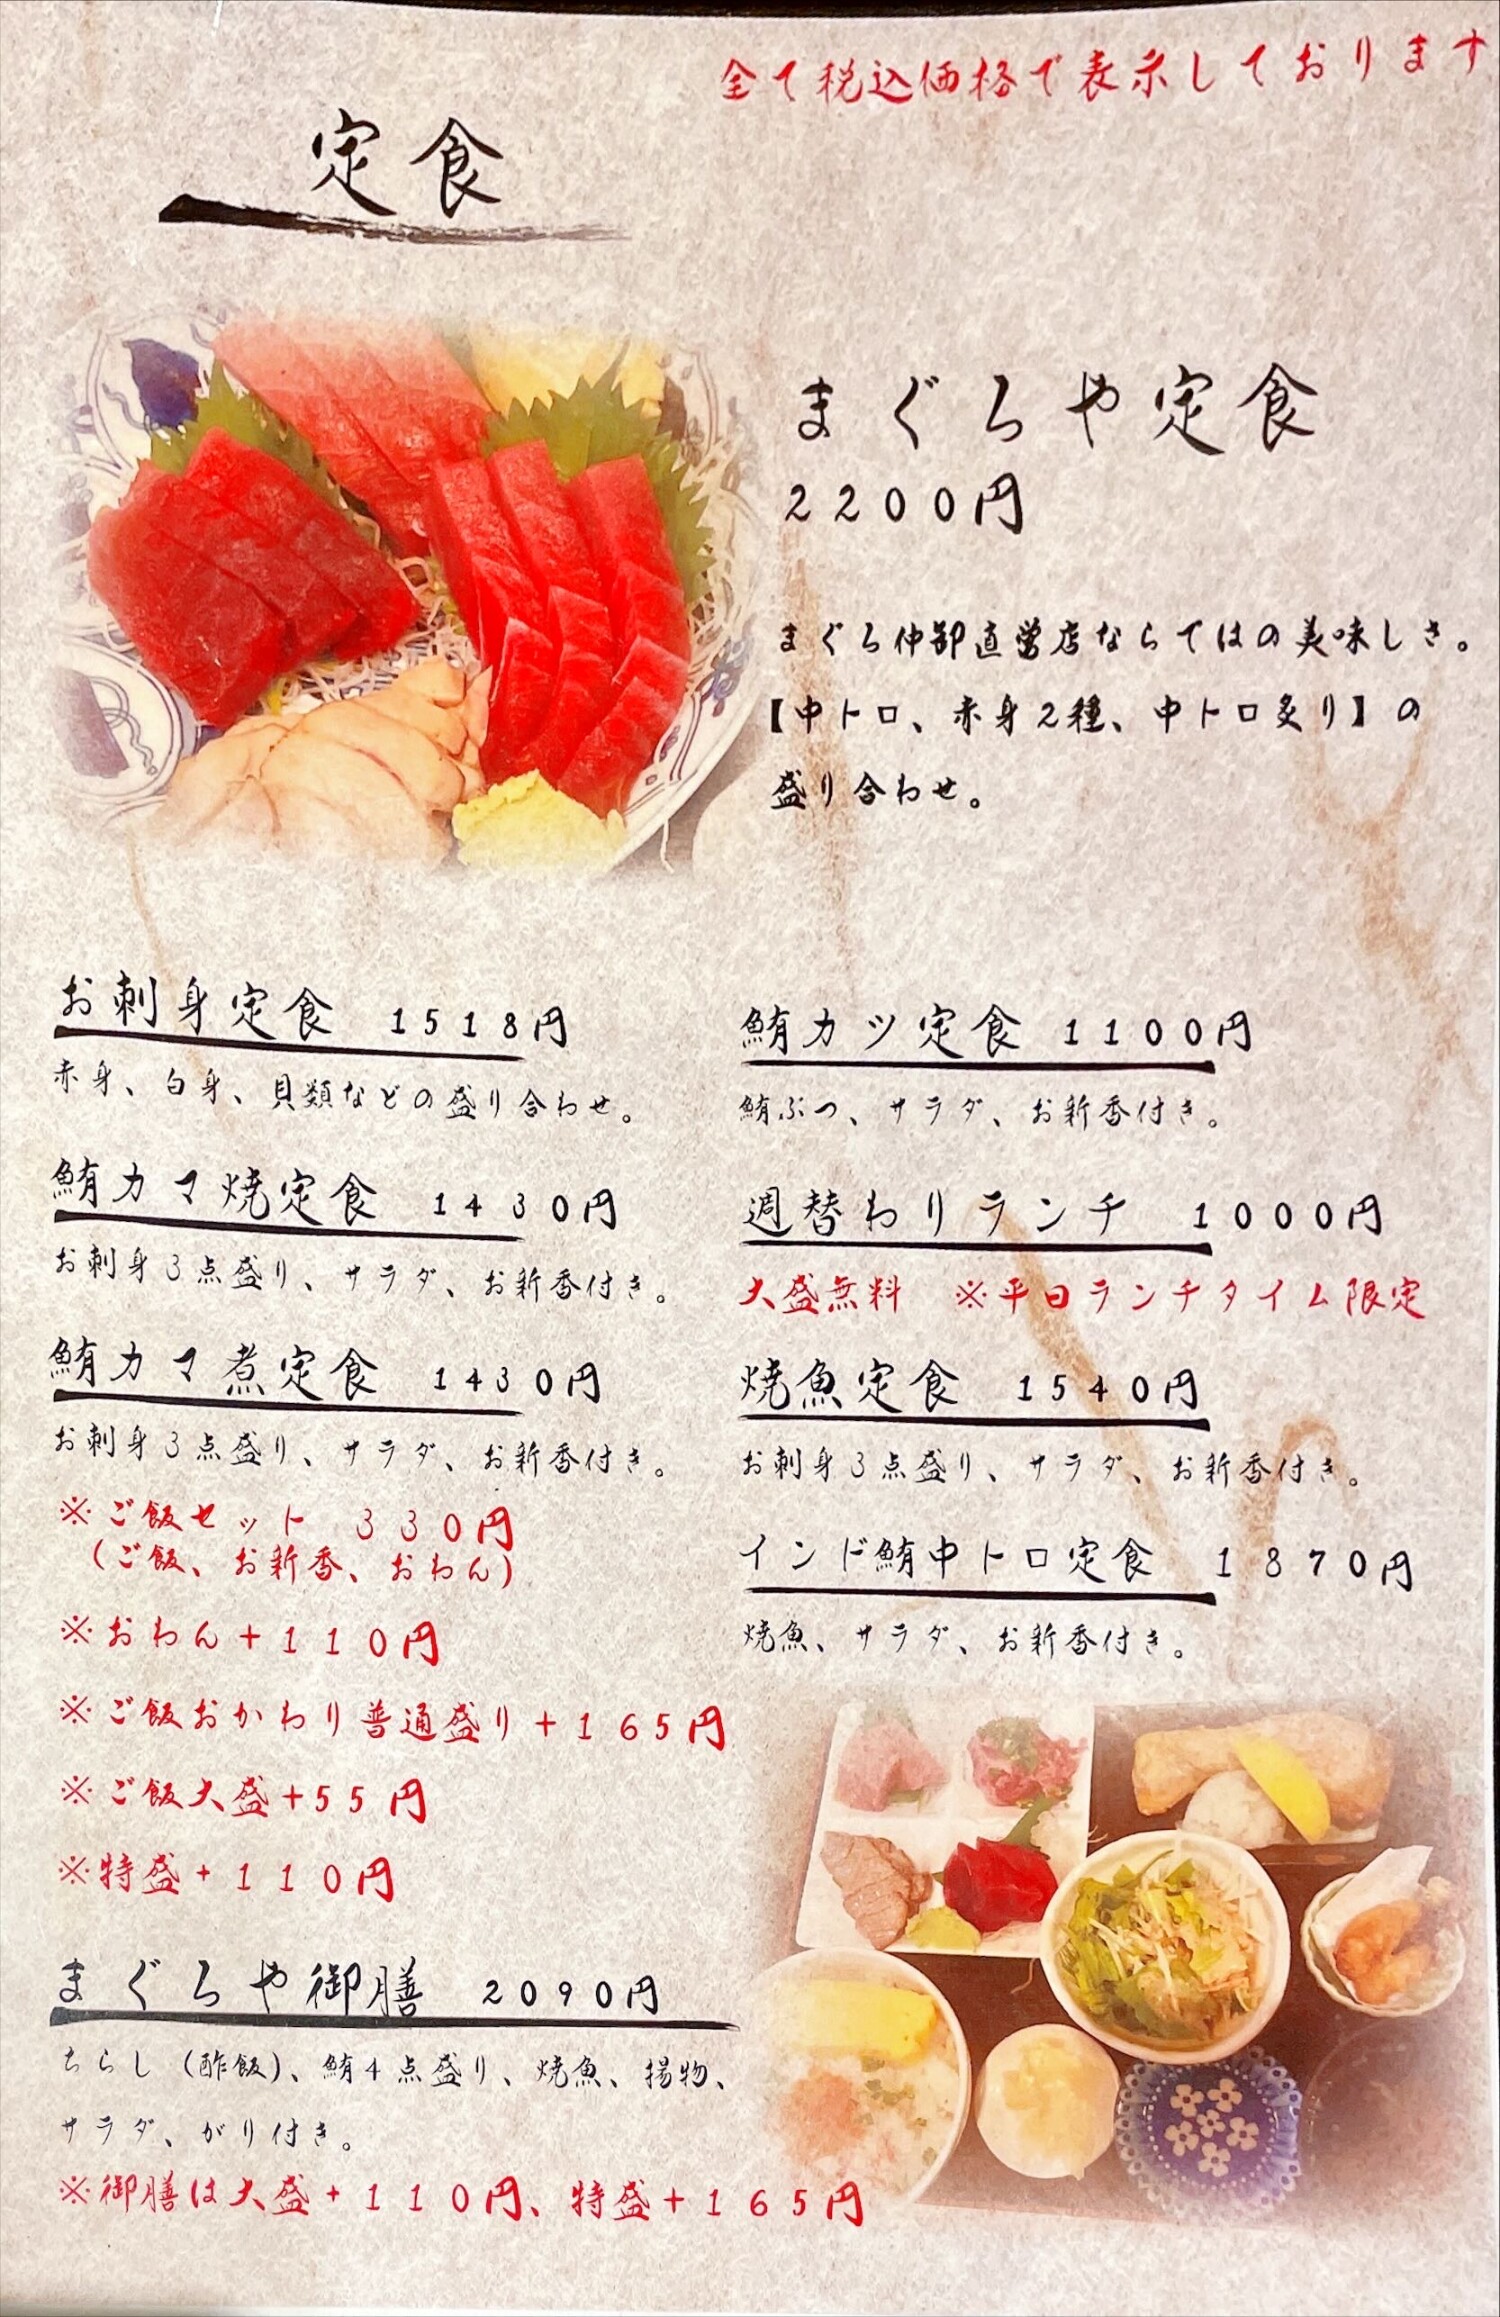 全て税込価格で表示しております
定食
まぐろや定食
2200円
まぐろ仲卸直営店ならではの美味しさ。
【中トロ、赤身2種、中トロ炙り】の
盛り合わせ。
お刺身定食 1518円
赤身、白身、貝類などの盛り合わせ。
鮪カマ焼定食 1430円
お刺身3点盛り、サラダ、お新香付き。
鮪カマ煮定食 1430円
お刺身3点盛り、サラダ、お新香付き。
※ご飯セット 330円
(ご飯、お新香、おわん)
※おわん+110円
※ご飯おかわり普通盛り+165円
※ご飯大盛+55円
※特盛+110円
鮪カツ定食 1100円
鮪ぶつ、サラダ、お新香付き。
週替わりランチ 1000円
大盛無料 ※平日ランチタイム限定
焼魚定食 1540円
お刺身3点盛り、サラダ、お新香付き。
インド鮪中トロ定食 1870円
焼魚、サラダ、お新香付き。
まぐろや御膳 2090円
ちらし(酢飯)、鮪4点盛り、焼魚、揚物、
サラダ、がり付き。
※御膳は大盛+110円、特盛+165円